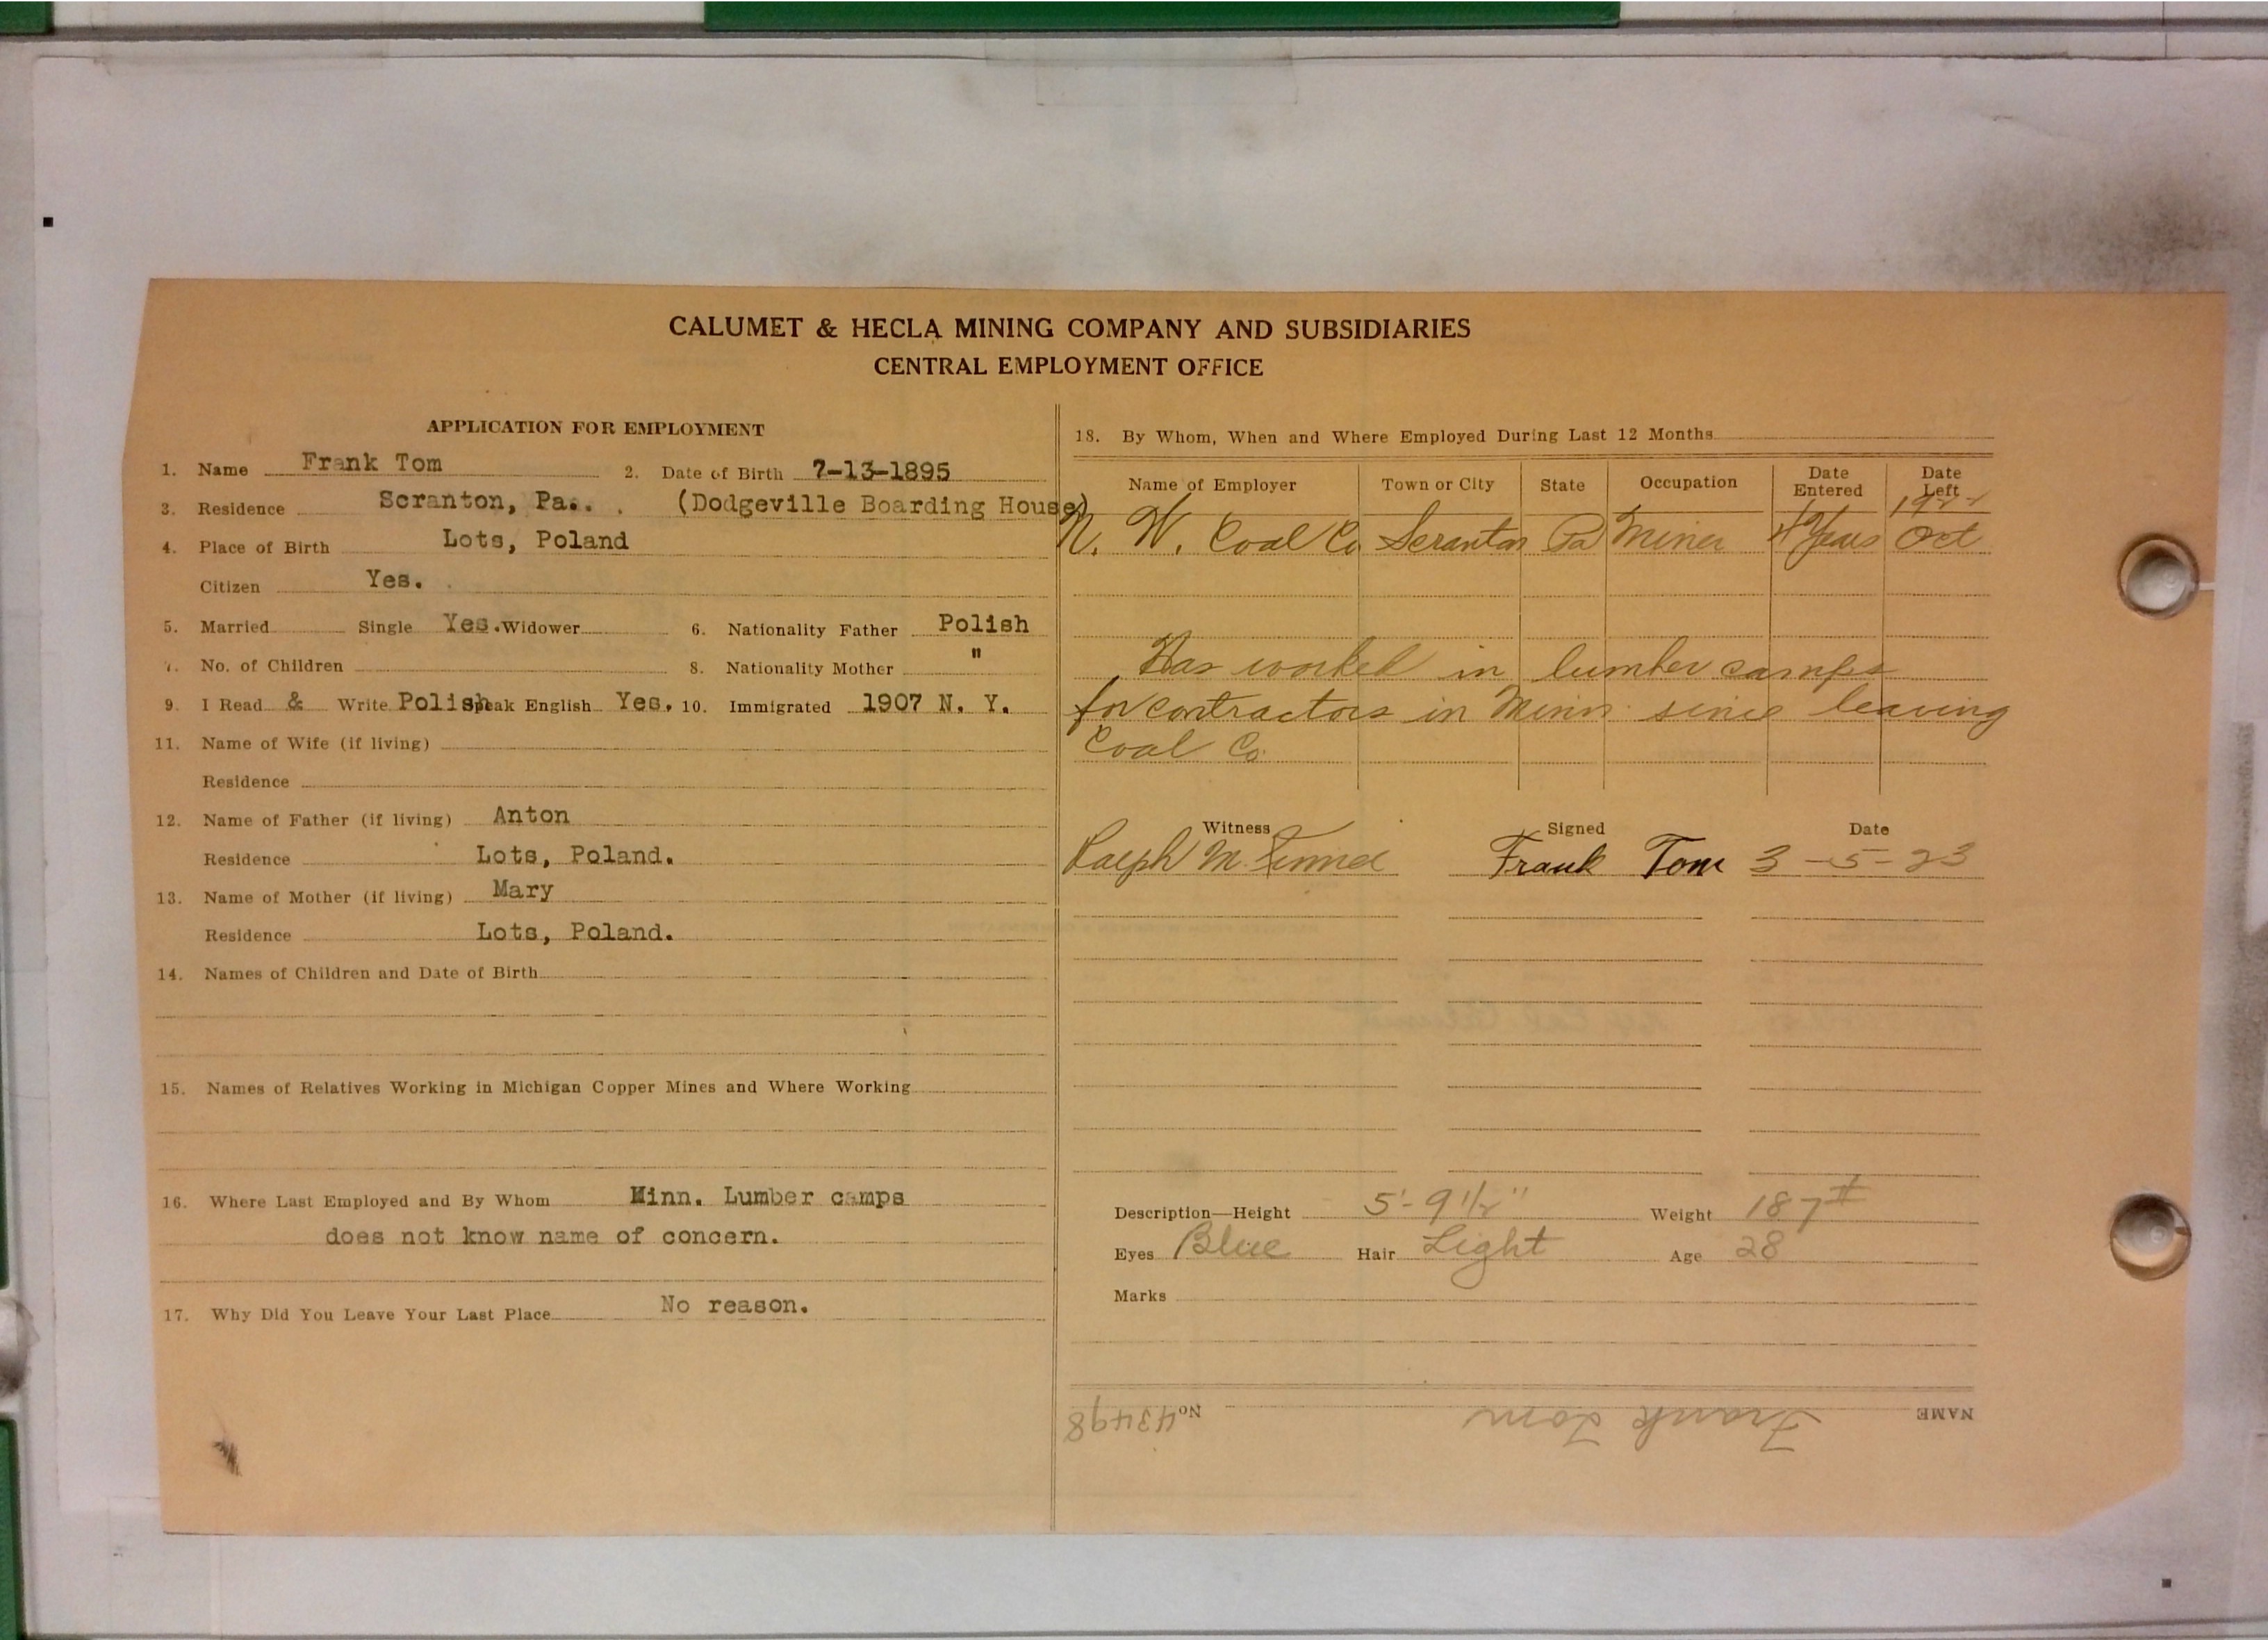 CALUMET & HECLA MINING COMPANY AND SUBSIDIARIES
CENTRAL EMPLOYMENT OFFICE
APPLICATION FOR EMPLOYMENT
1. Name Frank Tom 2. Date of Birth 7-13-1895
3. Residence Scranton, Pa.. . (Dodgeville Boarding House)
4. Place of Birth Lots, Poland
Citizen Yes.
5. Married Single Yes. Widower 6. Nationality Father Polish
7. No. of Children 8. Nationality Mother "
9. I Read & Write Polish Speak English Yes. 10. Immigrated 1907 N. Y.
11. Name of Wife (if living)
Residence
12. Name of Father (if living) Anton
Residence Lots, Poland.
13. Name of Mother (if living) Mary
Residence Lots, Poland.
14. Names of Children and Date of Birth
15. Names of Relatives Working in Michigan Copper Mines and Where Working
16. Where Last Employed and By Whom Minn. Lumber camps
does not know name of concern.
17. Why Did You Leave Your Last Place No reason.
18. By Whom, When and Where Employed During Last 12 Months
Name of Employer Town or City State Occupation Date Entered Date Left
1922
N. W. Coal Co Scranton Pa Miner 4 Years Oct
Has worked in lumber camps
for contractors in Minn. since leaving
Coal Co.
Witness Signed Date
Ralph M. Frank Tom 3-5-23
Description—Height 5'-9 1/2" Weight 187#
Eyes Blue Hair Light Age 28
Marks
NAME Frank Tom No 43498